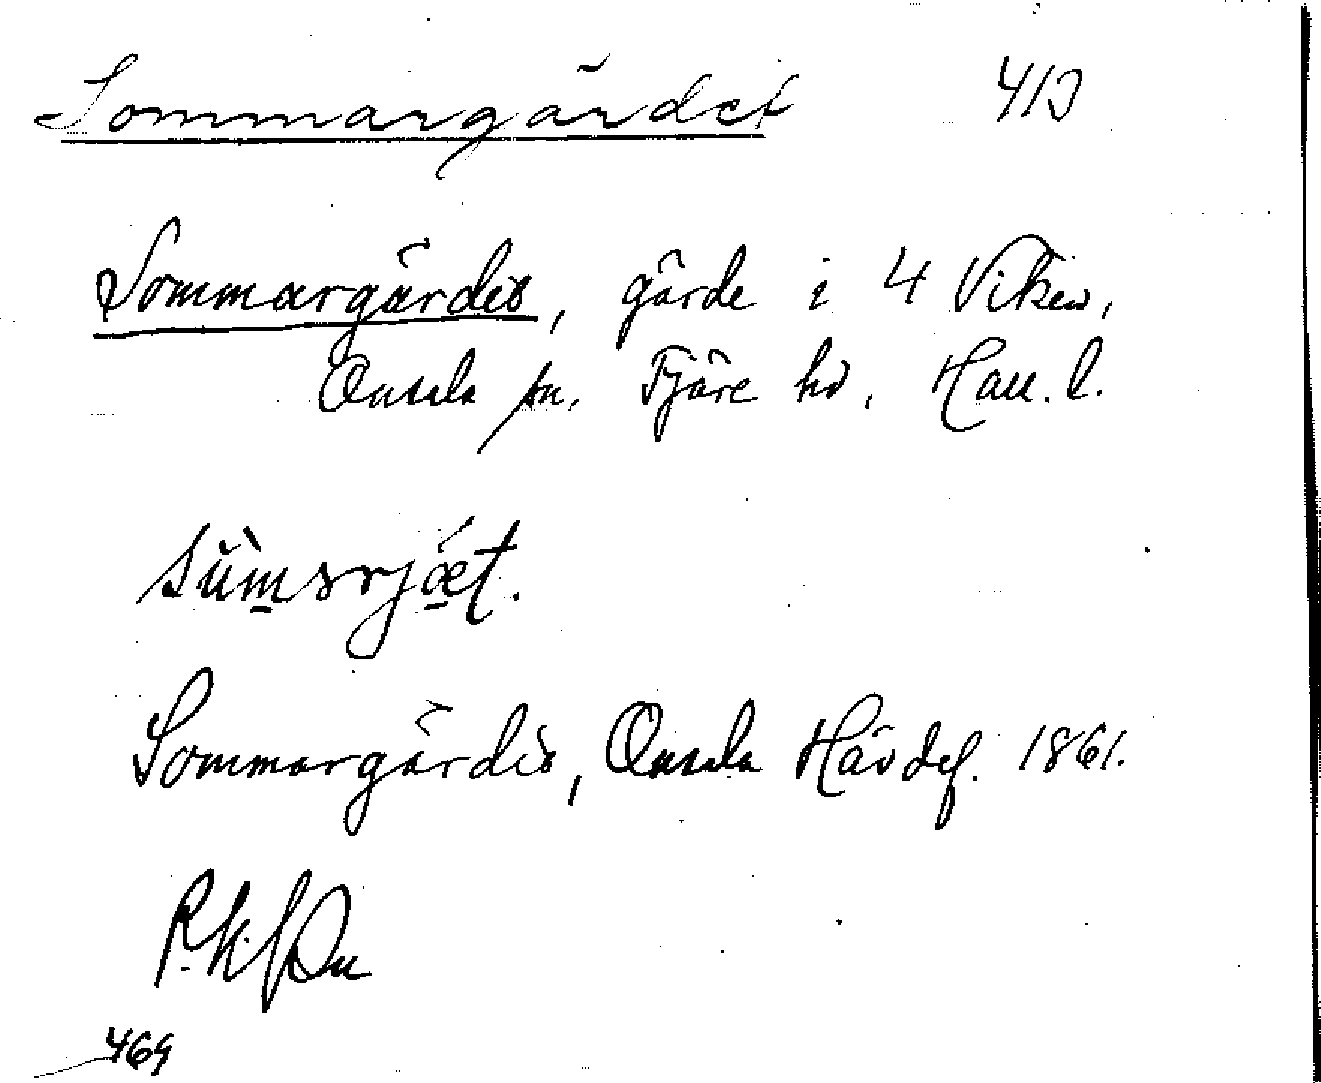 Sommargärdet 413
Sommargärdet, gärde i 4 Viken,
Onsala sn. Fjäre hd, Hall. l.
sùmsrjæt.
Sommargärdet, Onsala Hävdef. 1861.
469